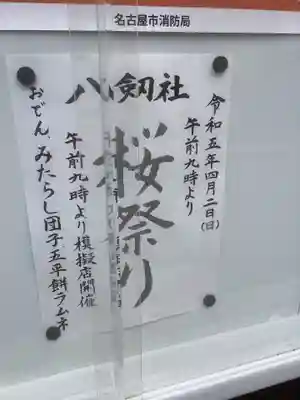 名古屋市消防局
八剱社
令和五年四月二日(日)
午前九時より
桜祭り
午前九時より模擬店開催
おでん、みたらし団子五平餅ラムネ